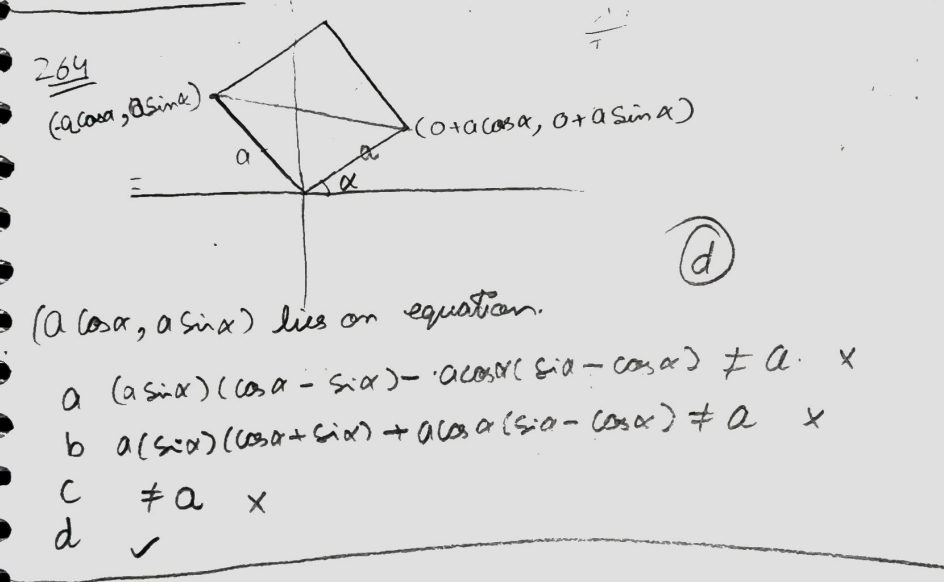 264
(-acosα, asinα)
(0+acosα, 0+asinα)
a
a
α
d
(a cosα, a sinα) lies on equation.
a (a sinα)(cosα - sinα) - acosα(sinα - cosα) ≠ a. ×
b a(sinα)(cosα + sinα) + acosα(sinα - cosα) ≠ a ×
c ≠ a ×
d ✓